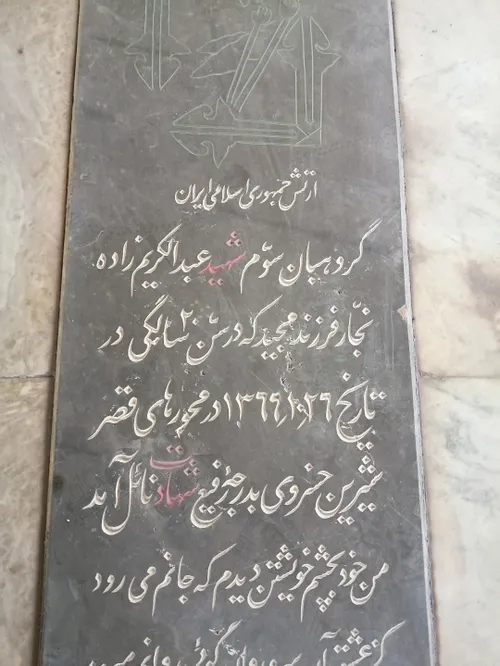 ارتش جمهوری اسلامی ایران
گروهبان سوّم شهید عبدالکریم زاده
نجّار فرزند مجید که در سن ۲۰ سالگی در
تاریخ ۱۳۶۶٫۱۰٫۲۶ در محورهای قصر
شیرین خسروی بدرجه رفیع شهادت نائل آمد
من خود بچشم خویشتن دیدم که جانم می رود